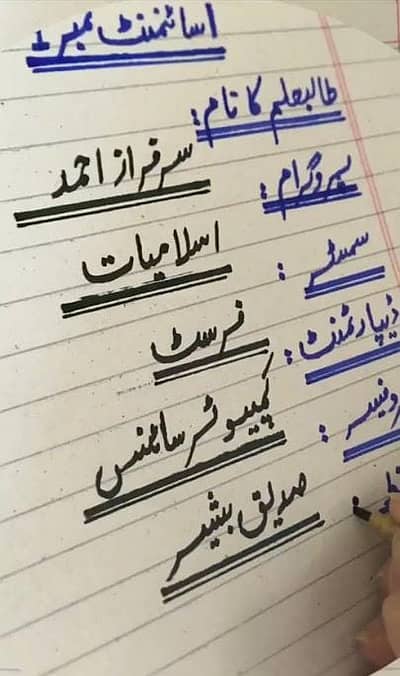 اسائنمنٹ نمبر 1
طالبعلم کا نام:
سرفراز احمد
پروگرام:
اسلامیات
سمسٹر:
فرسٹ
ڈیپارٹمنٹ:
کمپیوٹر سائنس
روفیسر:
صدیق بشیر